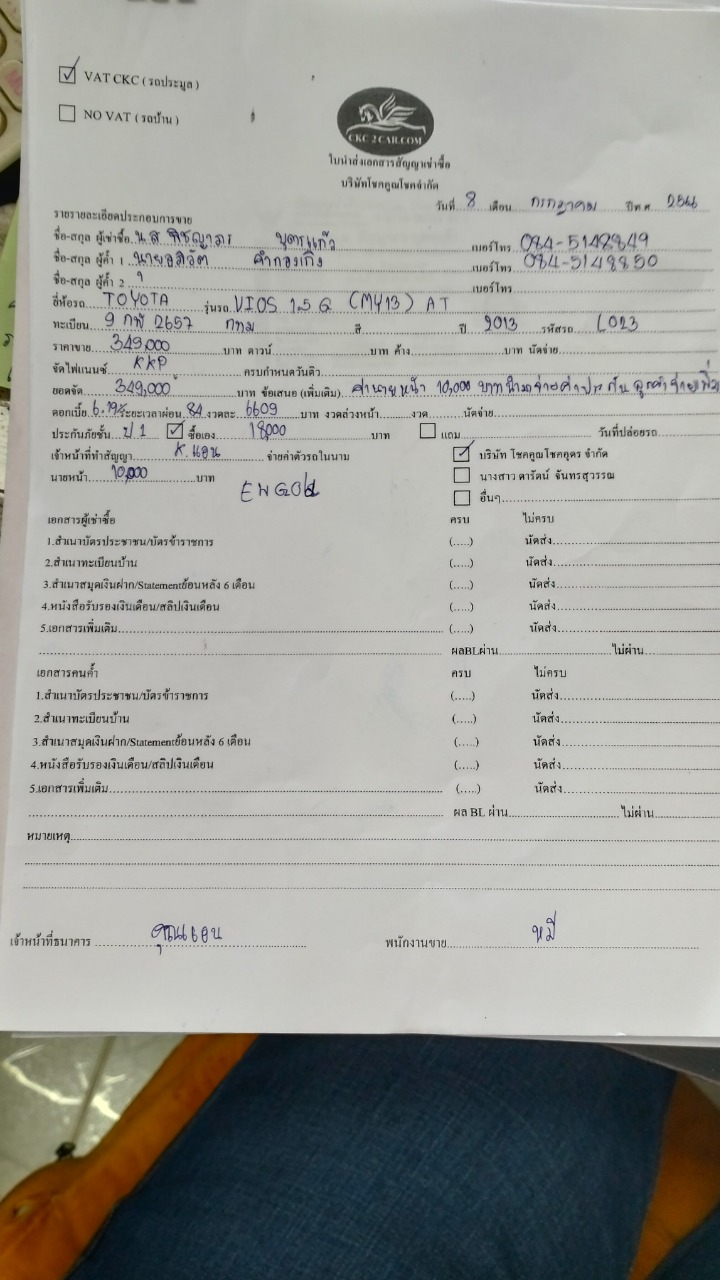 ☑ VAT CKC ( รถประมูล )
☐ NO VAT ( รถบ้าน )
CKC 2 CAR.COM
ใบนำส่งเอกสารสัญญาเช่าซื้อ
บริษัทโชคคูณโชคจำกัด
วันที่ 8 เดือน กรกฎาคม ปีพ.ศ.
รายรายละเอียดประกอบการขาย
ชื่อ-สกุล ผู้เช่าซื้อ น.ส พิชญาภร บุตรแก้ว เบอร์โทร 084-5148849
ชื่อ-สกุล ผู้ค้ำ 1 นายอภิวัต คำกองเกิ่ง เบอร์โทร 084-5148850
ชื่อ-สกุล ผู้ค้ำ 2 เบอร์โทร
ยี่ห้อรถ TOYOTA รุ่นรถ VIOS 1.5 G (MY13) AT
ทะเบียน 9 กฬ 2657 กทม สี ปี 2013 รหัสรถ L023
ราคาขาย 349,000 บาท ดาวน์ บาท ค้าง บาท นัดจ่าย
จัดไฟแนนซ์ KKP ครบกำหนดวันติว
ยอดจัด 349,000 บาท ข้อเสนอ (เพิ่มเติม) ค่านายหน้า 10,000 บาท นำมาจ่ายค่าประกัน ลูกค้าจ่ายเพิ่ม
ดอกเบี้ย 6.79% ระยะเวลาผ่อน 84 งวดละ 6609 บาท งวดล่วงหน้า งวด นัดจ่าย
ประกันภัยชั้น ป.1 ☑ ซื้อเอง 18,000 บาท ☐ แถม วันที่ปล่อยรถ
เจ้าหน้าที่ทำสัญญา K.แอน จ่ายค่าตัวรถในนาม ☑ บริษัท โชคคูณโชคอุดร จำกัด
☐ นางสาว ดารัตน์ จันทรสุวรรณ
นายหน้า 10,000 บาท ☐ อื่นๆ
เอกสารผู้เช่าซื้อ ครบ ไม่ครบ
1.สำเนาบัตรประชาชน/บัตรข้าราชการ (.....) นัดส่ง
2.สำเนาทะเบียนบ้าน (.....) นัดส่ง
3.สำเนาสมุดเงินฝาก/Statementย้อนหลัง 6 เดือน (.....) นัดส่ง
4.หนังสือรับรองเงินเดือน/สลิปเงินเดือน (.....) นัดส่ง
5.เอกสารเพิ่มเติม (.....) นัดส่ง
ผลBLผ่าน ไม่ผ่าน
เอกสารคนค้ำ ครบ ไม่ครบ
1.สำเนาบัตรประชาชน/บัตรข้าราชการ (.....) นัดส่ง
2.สำเนาทะเบียนบ้าน (.....) นัดส่ง
3.สำเนาสมุดเงินฝาก/Statementย้อนหลัง 6 เดือน (.....) นัดส่ง
4.หนังสือรับรองเงินเดือน/สลิปเงินเดือน (.....) นัดส่ง
5.เอกสารเพิ่มเติม (.....) นัดส่ง
ผล BL ผ่าน ไม่ผ่าน
หมายเหตุ
เจ้าหน้าที่ธนาคาร คุณแอน พนักงานขาย หมี